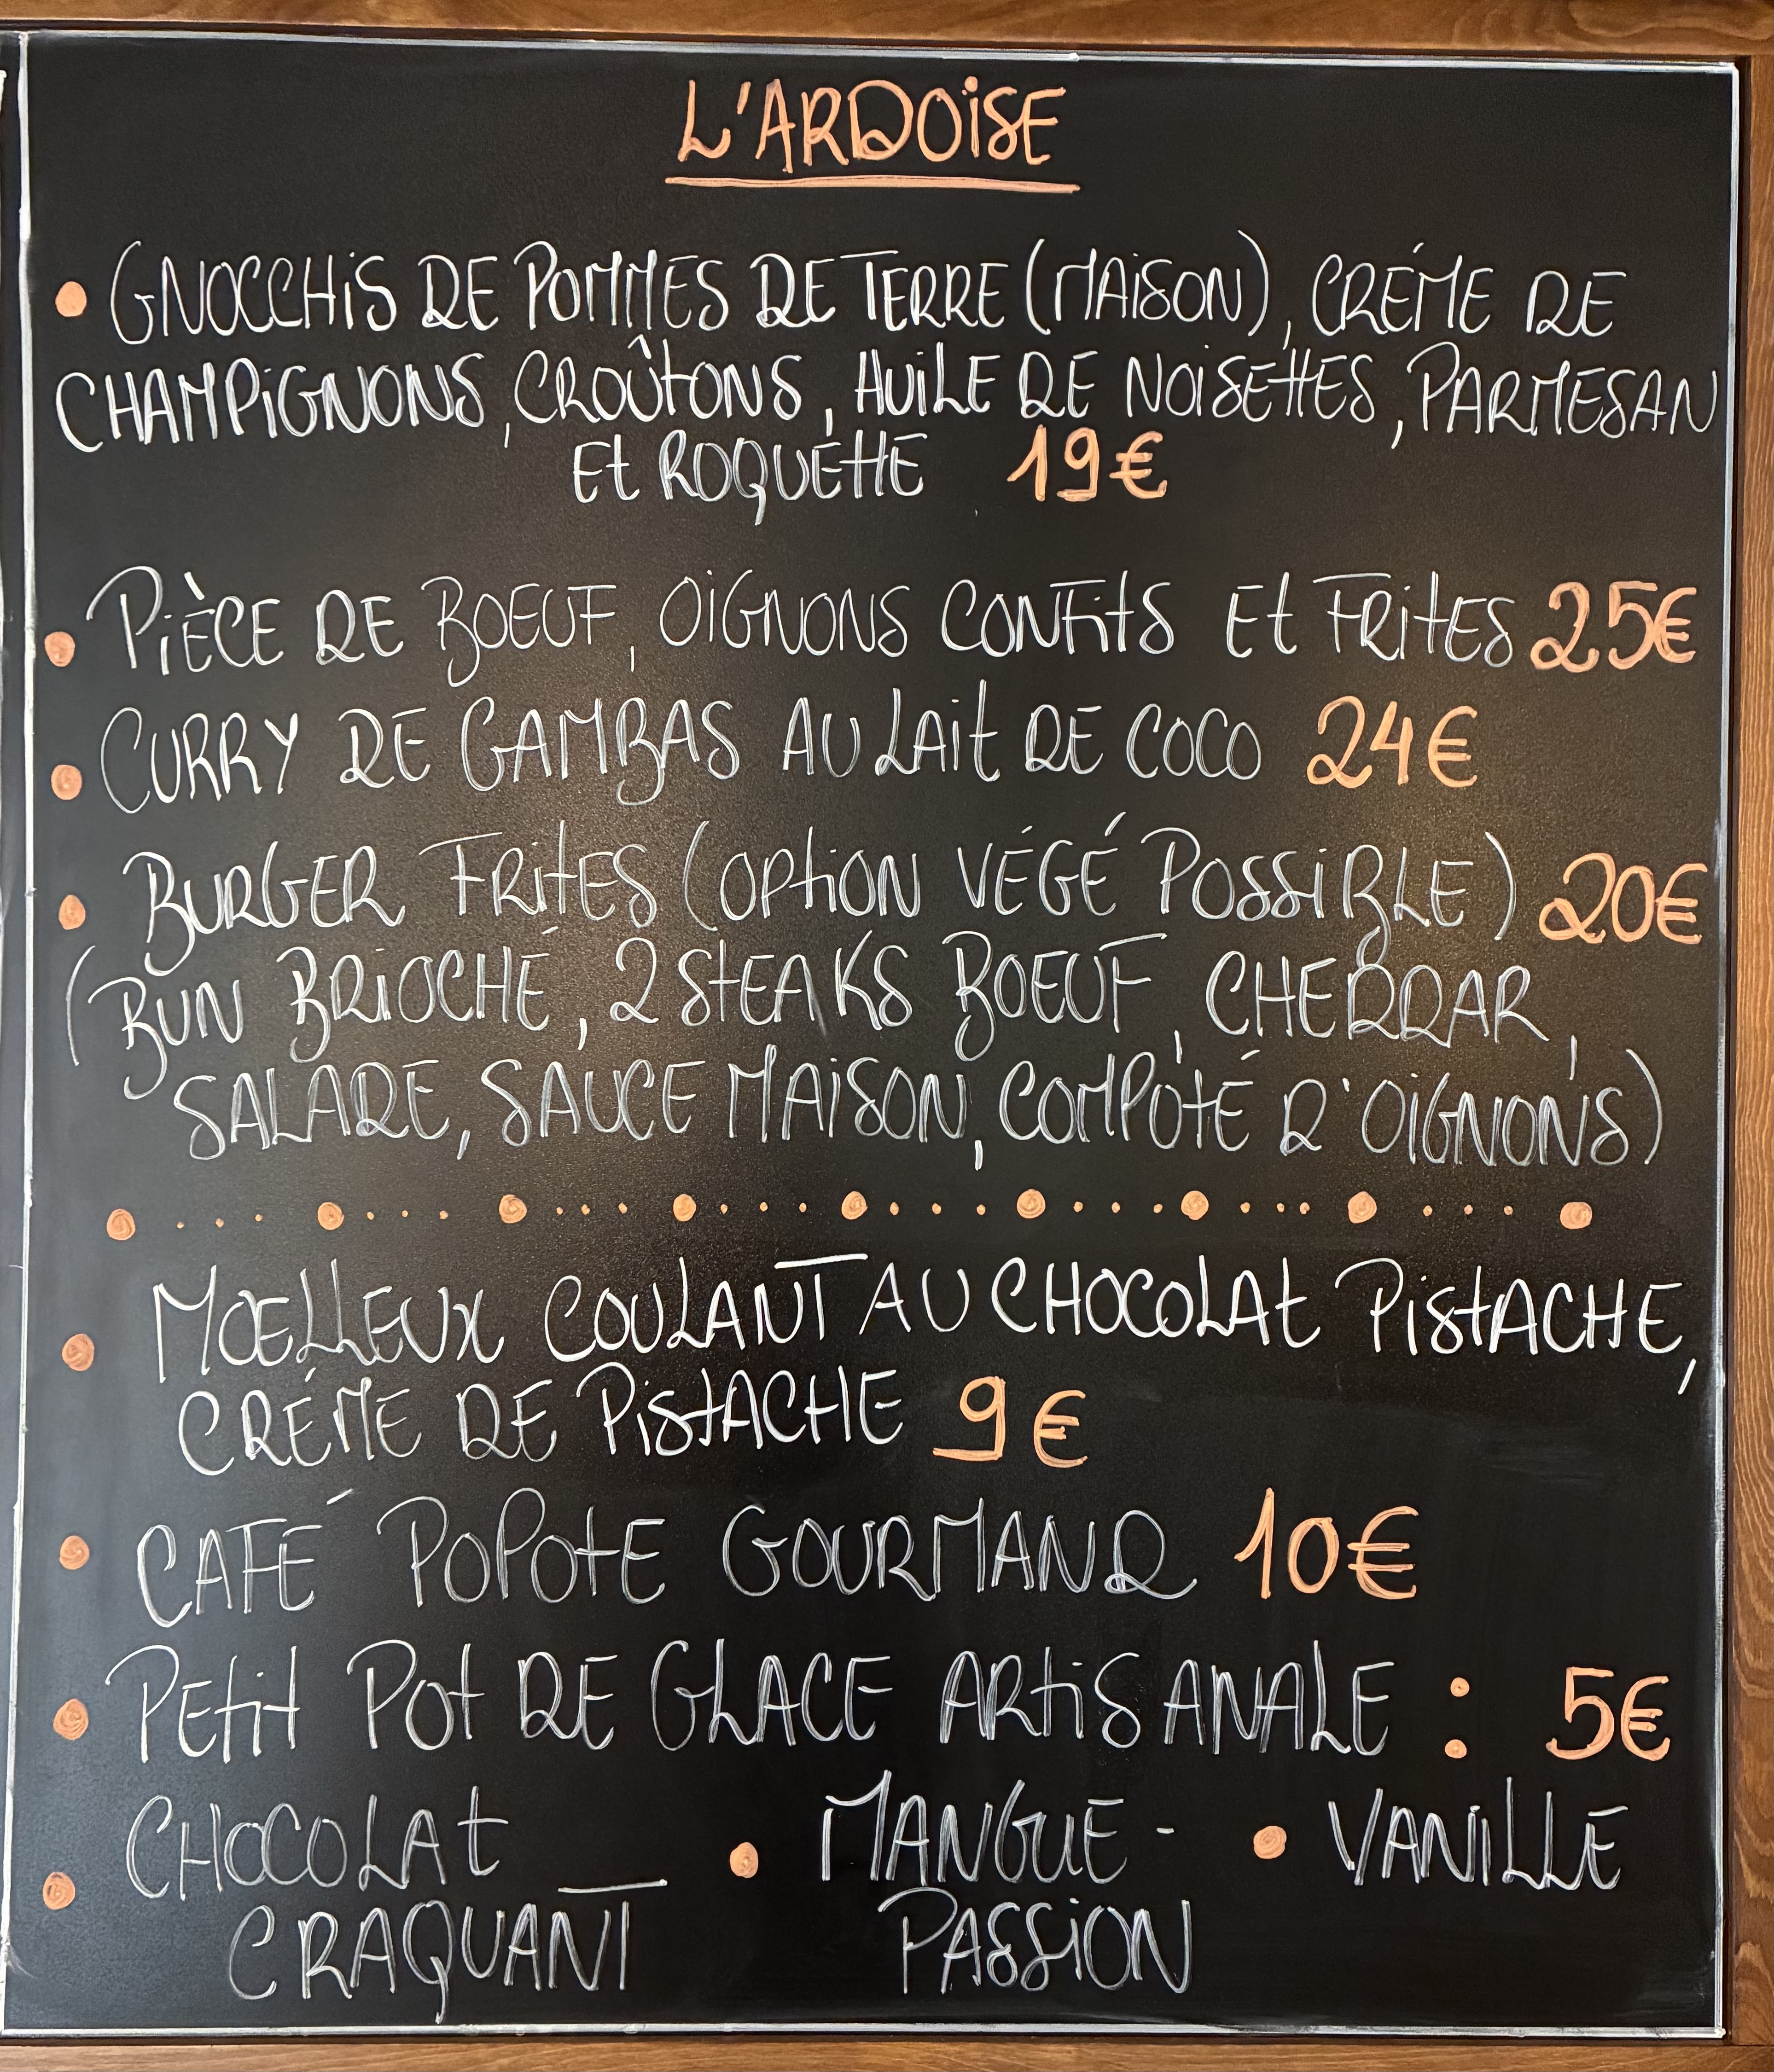 L'ARDOISE
• GNOCCHIS DE POMMES DE TERRE (MAISON), CRÉME DE
CHAMPIGNONS, CROÛTONS, HUILE DE NOISETTES, PARMESAN
ET ROQUÉTTE 19€
• PIÈCE DE BOEUF, OIGNONS CONFITS ET FRITES 25€
• CURRY DE GAMBAS AU LAIT DE COCO 24€
• BURGER FRITES (OPTION VÉGÉ POSSIBLE) 20€
(BUN BRIOCHÉ, 2 STEAKS BOEUF, CHEDDAR,
SALADE, SAUCE MAISON, COMPOTÉ D'OIGNONS)
• MOELLEUX COULANT AU CHOCOLAT PISTACHE,
CRÉME DE PISTACHE 9€
• CAFÉ POPOTE GOURMAND 10€
• PETIT POT DE GLACE ARTISANALE : 5€
• CHOCOLAT CRAQUANT
• MANGUE - PASSION
• VANILLE